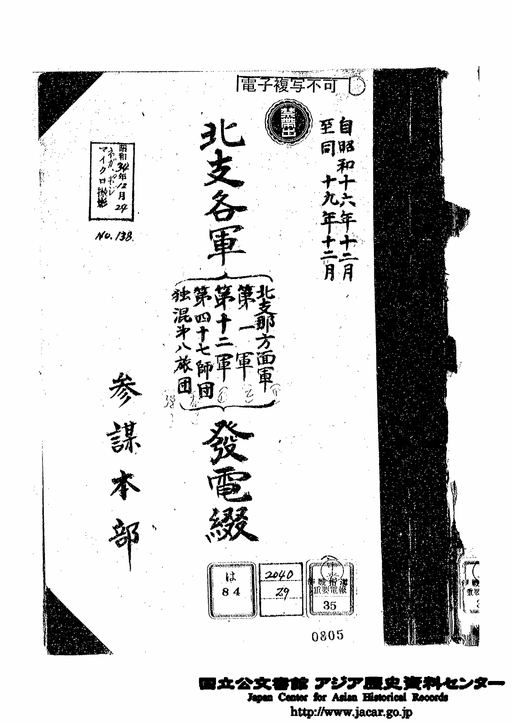 電子複写不可
禁帯出
自昭和十六年十二月
至同 十九年十二月
北支各軍
北支那方面軍
第一軍
第十二軍
第四十七師団
独混第八旅団
發電綴
参謀本部
昭和34年12月24
マイクロ撮影
No. 138
は
84
2040
29
35
0805
国立公文書館 アジア歴史資料センター
Japan Center for Asian Historical Records
http://www.jacar.go.jp